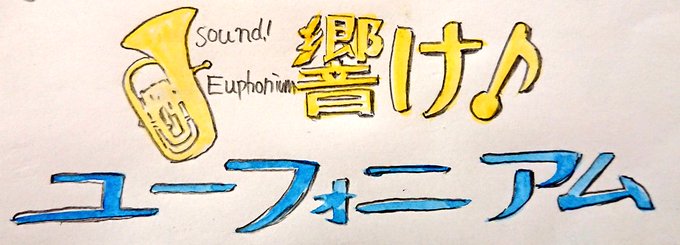 sound!
Euphonium
響け♪
ユーフォニアム